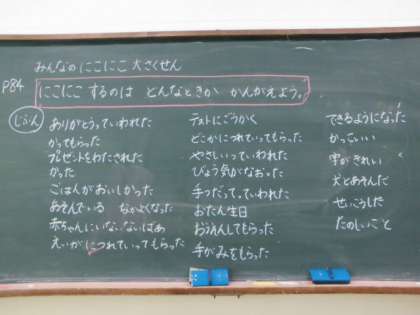 みんなの にこにこ 大さくせん
P84
にこにこ するのは どんなときか かんがえよう。
じぶん
ありがとうっていわれた
かってもらった
プレゼントをわたされた
かった
ごはんがおいしかった
あそんでいる なかよくなった
赤ちゃんにいないいないばあ
えいがにつれていってもらった
テストにごうかく
どこかにつれていってもらった
やさしいっていわれた
びょう気がなおった
手つだってっていわれた
おたん生日
おうえんしてもらった
手がみをもらった
できるようになった
かっこいい
字がきれい
犬とあそんだ
せいこうした
たのしいこと